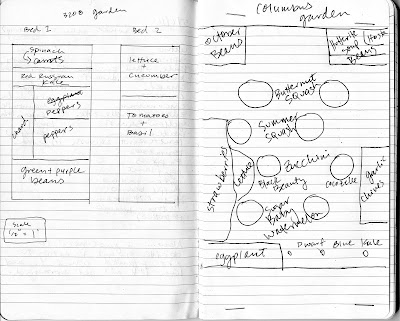 garden
Bed 1
Bed 2
spinach
carrots
Red Russian
Kale
eggplant
peppers
chard
peppers
green + purple
beans
lettuce
+
cucumber
Tomatoes
+
Basil
Scale
Columbus
garden
october
Beans
Hutterite
Soup
Beans
Butternut
Squash
Summer
Squash
strawberries
lettuce
Zucchini
Black
Beauty
Cocozelle
garlic
chives
Sugar
Baby
Watermelon
eggplant
Dwarf Blue Kale